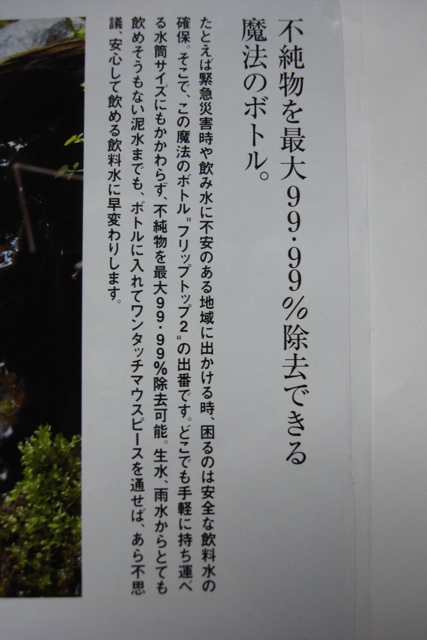 不純物を最大99・99%除去できる
魔法のボトル。
たとえば緊急災害時や飲み水に不安のある地域に出かける時、困るのは安全な飲料水の
確保。そこで、この魔法のボトル"フリップトップ2"の出番です。どこでも手軽に持ち運べ
る水筒サイズにもかかわらず、不純物を最大99・99%除去可能。生水、雨水からとても
飲めそうもない泥水までも、ボトルに入れてワンタッチマウスピースを通せば、あら不思
議、安心して飲める飲料水に早変わりします。